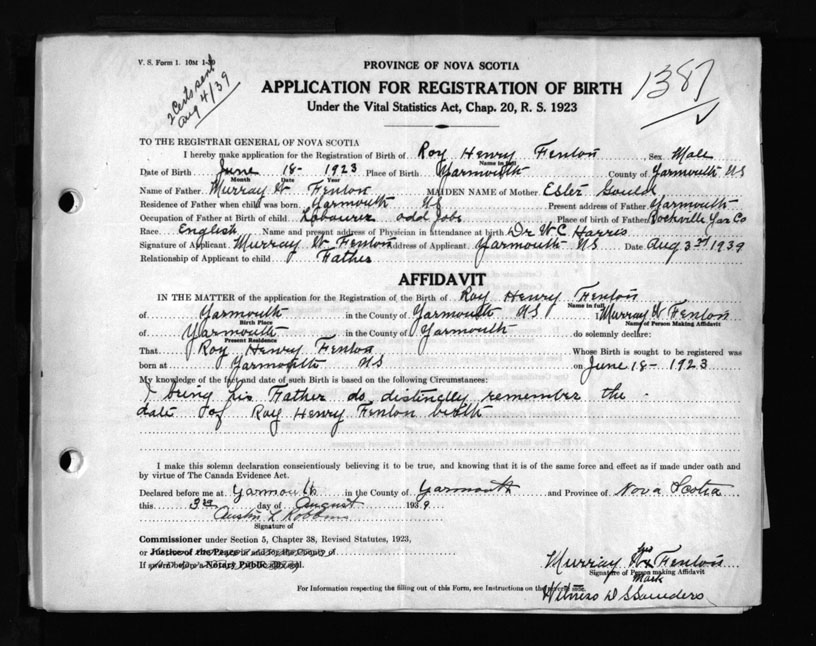 V. S. Form 1. 10M 1-39
2 Certs sent
Aug 4/39
1387
PROVINCE OF NOVA SCOTIA
APPLICATION FOR REGISTRATION OF BIRTH
Under the Vital Statistics Act, Chap. 20, R. S. 1923
TO THE REGISTRAR GENERAL OF NOVA SCOTIA
I hereby make application for the Registration of Birth of Roy Henry Fenton Sex Male
Name in full
Date of Birth June 18- 1923 Place of Birth Yarmouth County of Yarmouth NS
Month Date Year
Name of Father Murray W Fenton MAIDEN NAME of Mother Ester Gould
Residence of Father when child was born Yarmouth NS Present address of Father Yarmouth
Occupation of Father at Birth of child Labourer odd jobs Place of birth of Father Rockville Yar Co
Race English Name and present address of Physician in attendance at birth Dr W C Harris
Signature of Applicant Murray W Fenton Address of Applicant Yarmouth NS Date Aug 3rd 1939
Relationship of Applicant to child Father
AFFIDAVIT
IN THE MATTER of the application for the Registration of the Birth of Roy Henry Fenton
Name in full
of Yarmouth in the County of Yarmouth NS I, Murray W Fenton
Birth Place Name of Person Making Affidavit
of Yarmouth in the County of Yarmouth do solemnly declare:
Present Residence
That Roy Henry Fenton Whose Birth is sought to be registered was
born at Yarmouth NS on June 18- 1923
My knowledge of the fact and date of such Birth is based on the following Circumstances:
I being his Father do distinctly remember the
date of Roy Henry Fenton birth
I make this solemn declaration conscientiously believing it to be true, and knowing that it is of the same force and effect as if made under oath and
by virtue of The Canada Evidence Act.
Declared before me at Yarmouth in the County of Yarmouth and Province of Nova Scotia
this 3rd day of August 1939
Austin L Robbins
Signature of
Commissioner under Section 5, Chapter 38, Revised Statutes, 1923,
or Justice of the Peace in and for the County of
If sworn before Notary Public
Murray his W x Fenton
Signature of Person making Affidavit
Mark
Witness D S Saunders
For Information respecting the filling out of this Form, see Instructions on the reverse side.